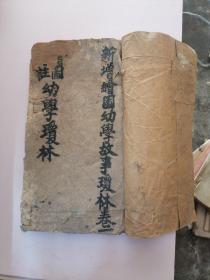 新增繪圖幼學故事瓊林卷一
圖註幼學瓊林